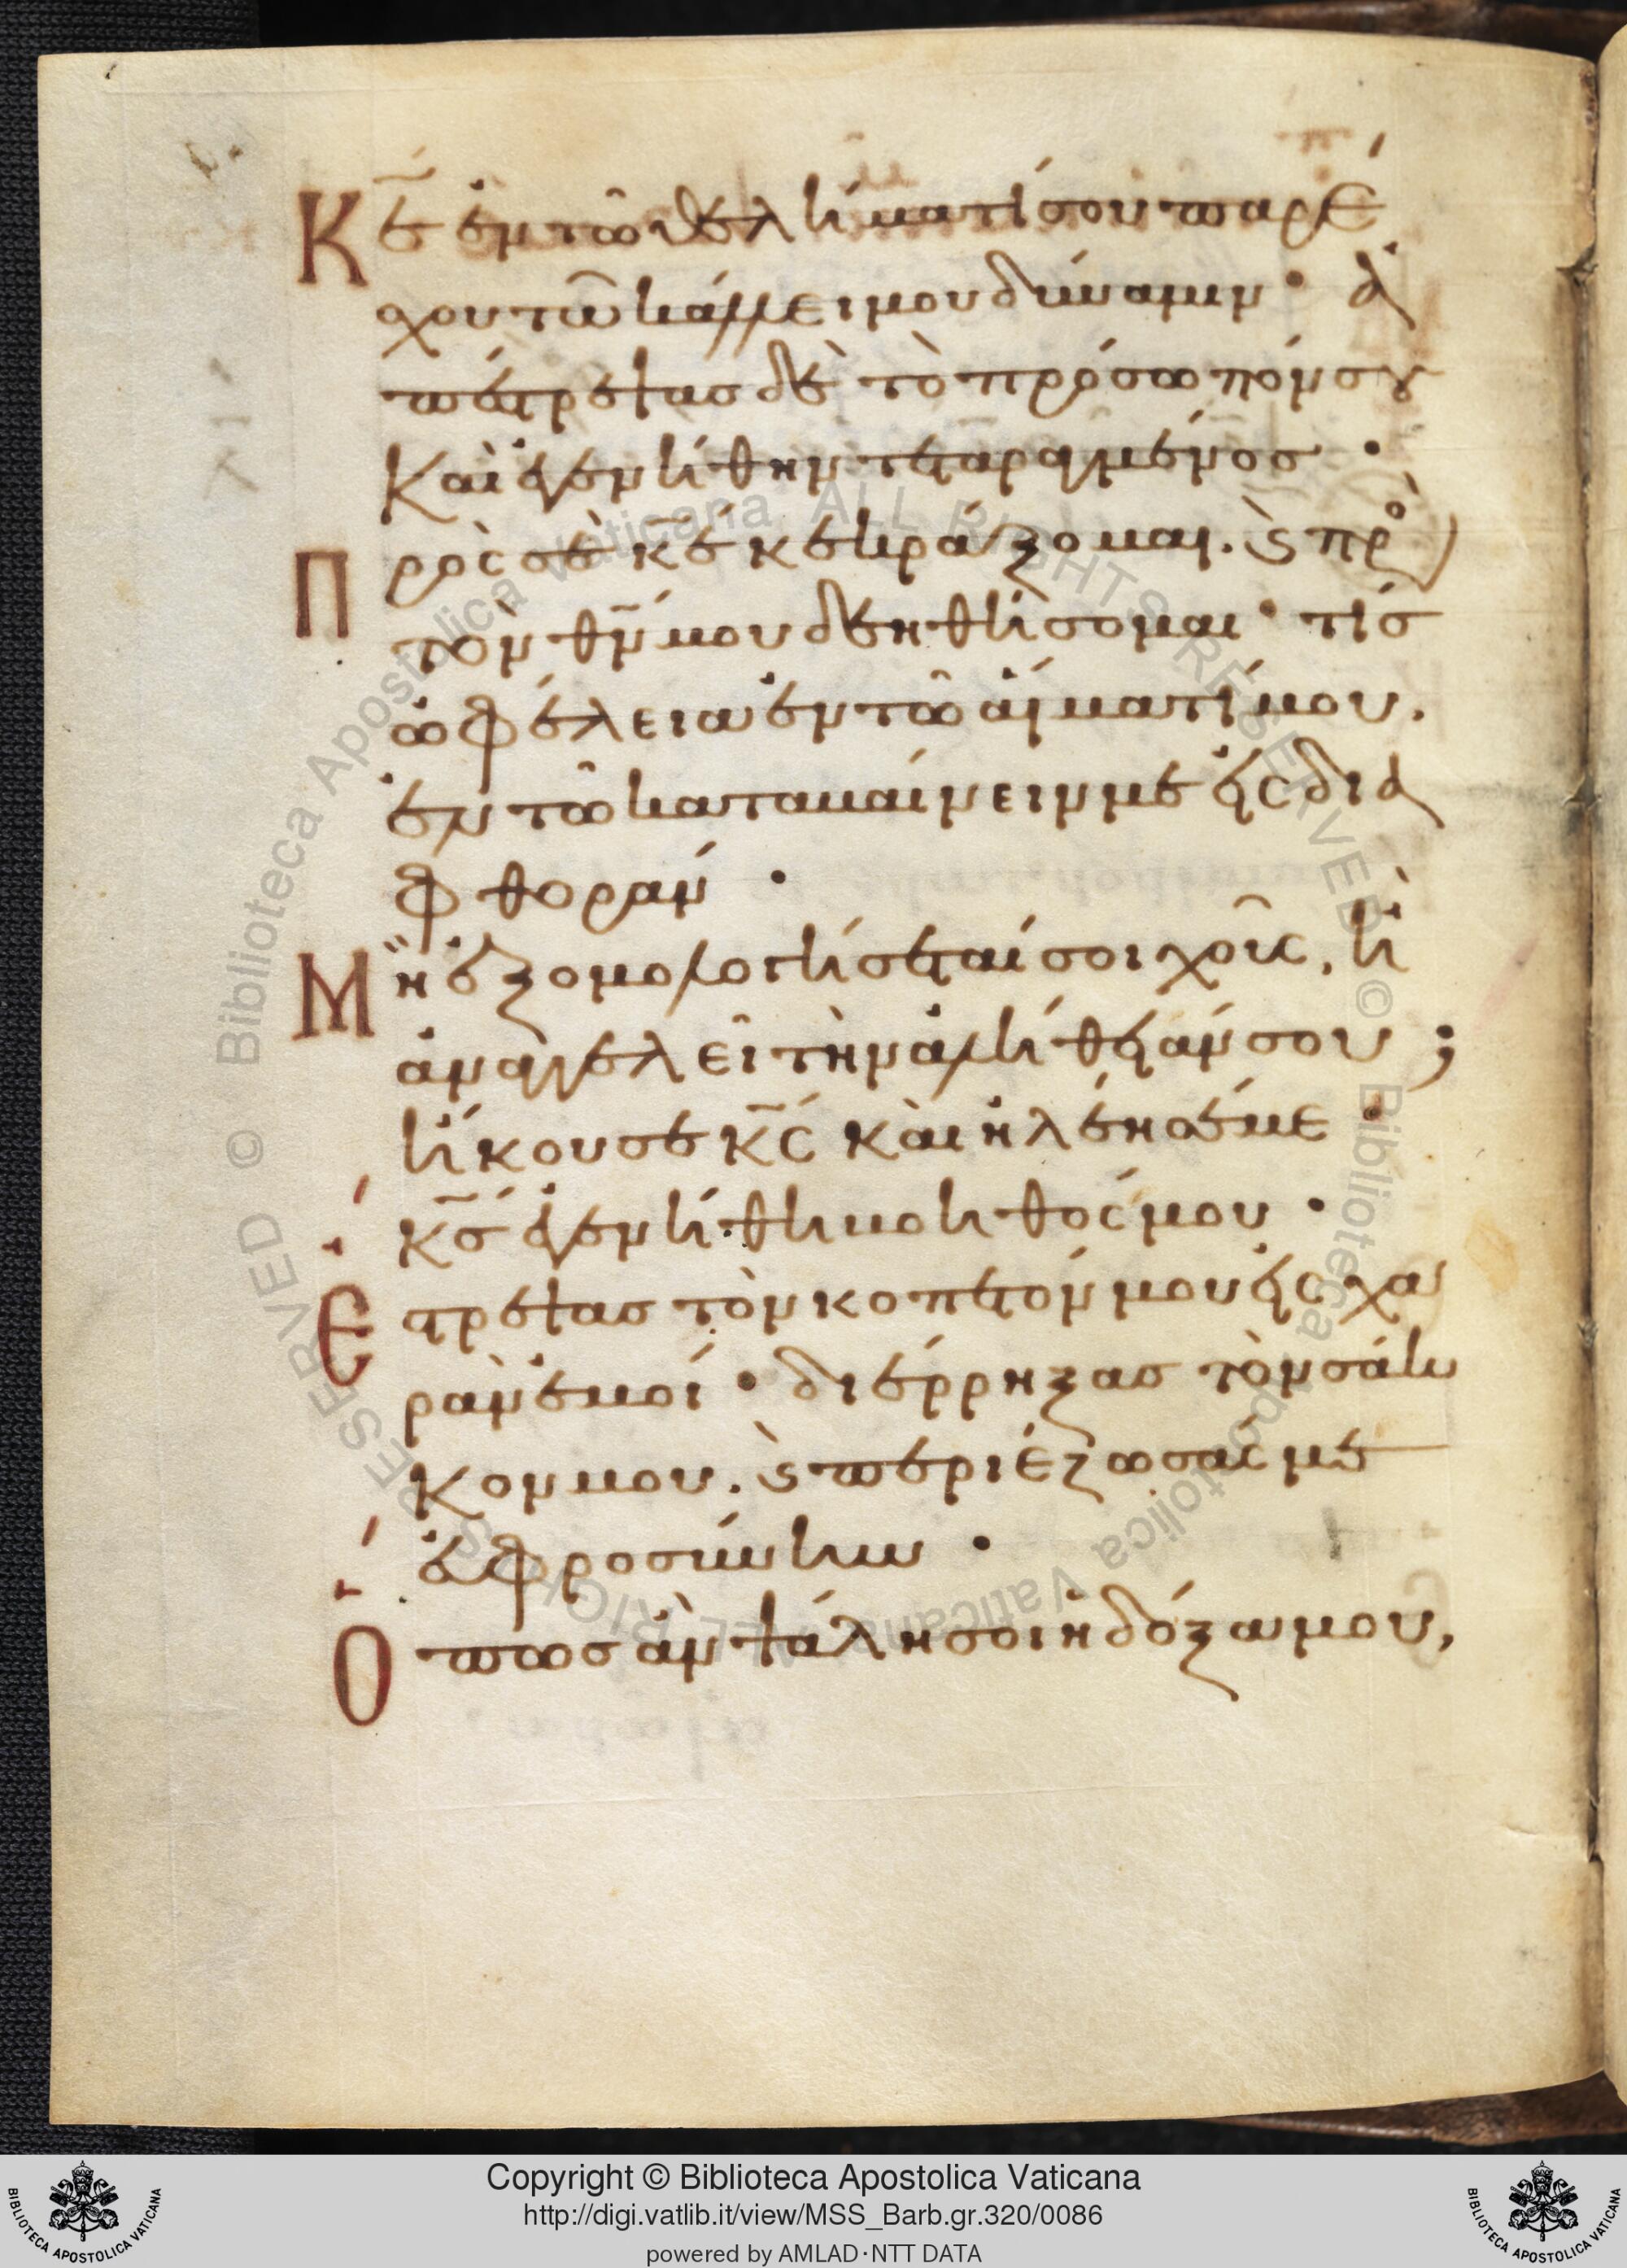 Κε ἐν τῶι θελήματί σου παρέ
χου τῶ κάλλει μου δύναμιν· ἀ
πέστρεψας δὲ τὸ πρόσωπόν σου
καὶ ἐγενήθην τεταραγμένος·
Πρὸς σὲ κε κεκράξομαι. ϗ πρὸ(ς)
τὸν θν μου δεηθήσομαι· τίς
ὠφέλεια ἐν τῶ αἵματί μου.
ἐν τῶ καταβαίνειν με εἰς δια
φθοράν·
Μὴ ἐξομολογήσεταί σοι χοῦς, ἢ
ἀναγγελεῖ τὴν ἀλήθειάν σου;
ἤκουσε κς καὶ ἠλέησέ με·
κς ἐγενήθη βοηθός μου·
Εστρεψας τὸν κοπετόν μου εἰς χα
ρὰν ἐμοί· διέρρηξας τὸν σάκ
κον μου. ϗ περιέζωσάς με
εὐφροσύνην·
Οπως ἂν ψάλη σοι ἡ δόξα μου,
© Biblioteca Apostolica Vaticana ALL RIGHTS RESERVED © Biblioteca Apostolica Vaticana ALL RIGHTS RESERVED
Copyright © Biblioteca Apostolica Vaticana
http://digi.vatlib.it/view/MSS_Barb.gr.320/0086
powered by AMLAD·NTT DATA
BIBLIOTECA APOSTOLICA VATICANA
BIBLIOTECA APOSTOLICA VATICANA